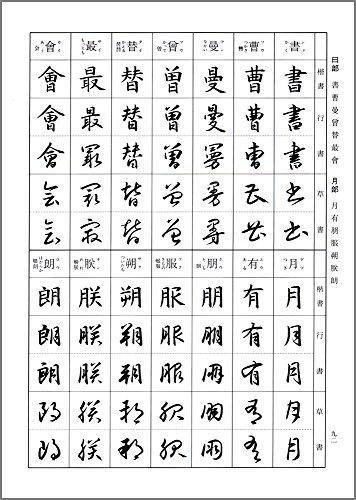 曰部 書曹曼曾替最會 月部 月有朋服朔朕朗
九二
楷書 行書 草書
書 書書書書書
曹 曹曹曹曹曹
曼 曼曼曼曼曼
曾 曾曾曾曾曾
替 替替替替替
最 最最最最最
會 會會會会会
楷書 行書 草書
月 月月月月月
有 有有有有有
朋 朋朋朋朋朋
服 服服服服服
朔 朔朔朔朔朔
朕 朕朕朕朕朕
朗 朗朗朗朗朗